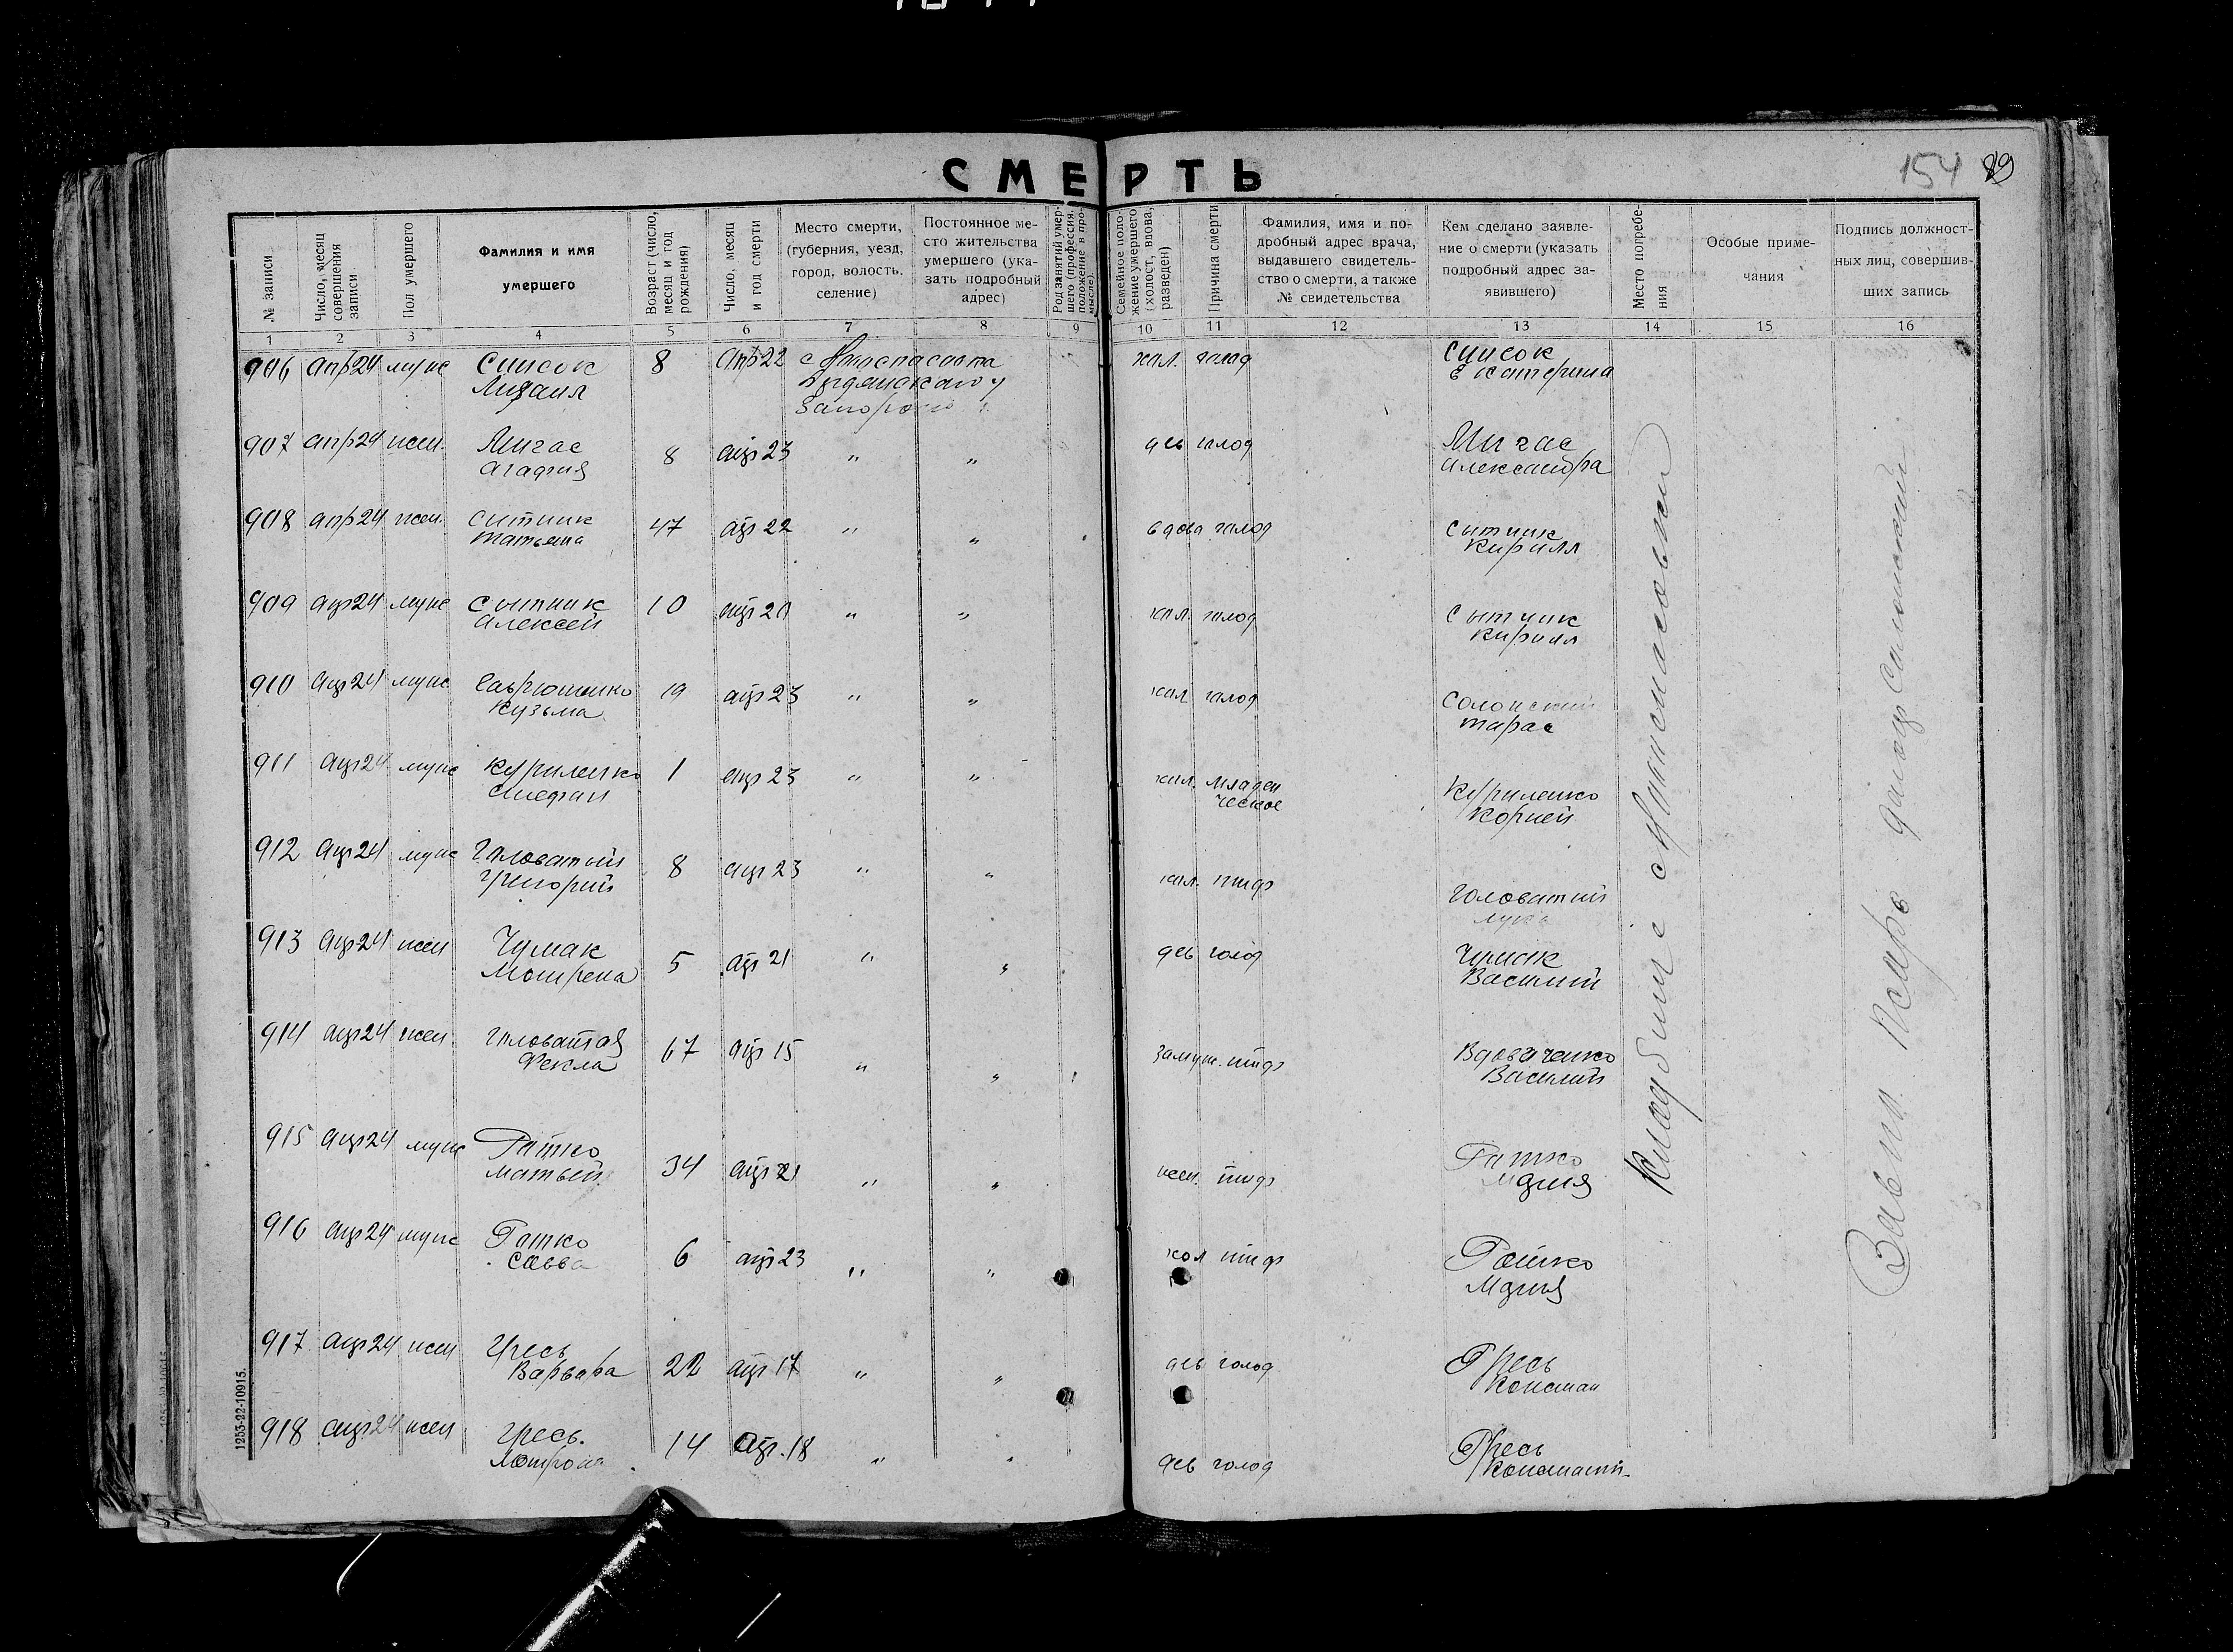 СМЕРТЬ
154 89
№ записи
Число, месяц совершения записи
Пол умершего
Фамилия и имя
умершего
Возраст (число, месяц и год рождения)
Число, месяц и год смерти
Место смерти,
(губерния, уезд,
город, волость,
селение)
Постоянное ме-
сто жительства
умершего (ука-
зать подробный
адрес)
Род занятий умер-
шего (профессия,
положение в про-
мысле).
Семейное поло-
жение умершего
(холост, вдова,
разведен)
Причина смерти
Фамилия, имя и по-
дробный адрес врача,
выдавшего свидетель-
ство о смерти, а также
№ свидетельства
Кем сделано заявле-
ние о смерти (указать
подробный адрес за-
явившего)
Место погребе-
ния
Особые приме-
чания
Подпись должност-
ных лиц, совершив-
ших запись
1 2 3 4 5 6 7 8 9 10 11 12 13 14 15 16
906 апр 24 муж 8 апр 22 с хол. голод
Михаил Екатерина
907 апр 24 жен. Мигас 8 апр 23 " " дев голод Мигас
Агафия Александра
908 апр 24 жен. Ситник 47 апр 22 " " вдова голод Сытник
Татьяна Кирилл
909 апр 24 муж Сытник 10 апр 20 " " хол. голод Сытник
Алексей Кирилл
910 апр 24 муж 19 апр 23 " " хол голод Солонский
Кузьма Тарас
911 апр 24 муж Куриленко 1 апр 23 " " хол. младен Куриленко
Стефан ческое Корней
912 апр 24 муж Головатый 8 апр 23 " " хол. тиф Головатий
Григорий Лука
913 апр 24 жен Чумак 5 апр 21 " " дев голод Чумак
Мотрена Василий
914 апр 24 жен Головатая 67 апр 15 " " замуж. тиф Вдовиченко
Фекла Василий
915 апр 24 муж Ратко 34 апр 21 " " жен. тиф Ратко
Матвей Мария
916 апр 24 муж Ратко 6 апр 23 " " хол тиф Ратко
Савва Мария
917 апр 24 жен Гресь 22 апр 17 " " дев голод Гресь
Варвара Констан
918 апр 24 жен Гресь. 14 апр. 18 " " дев голод Гресь
Констант.
Кладбище с
1253-22-10915.